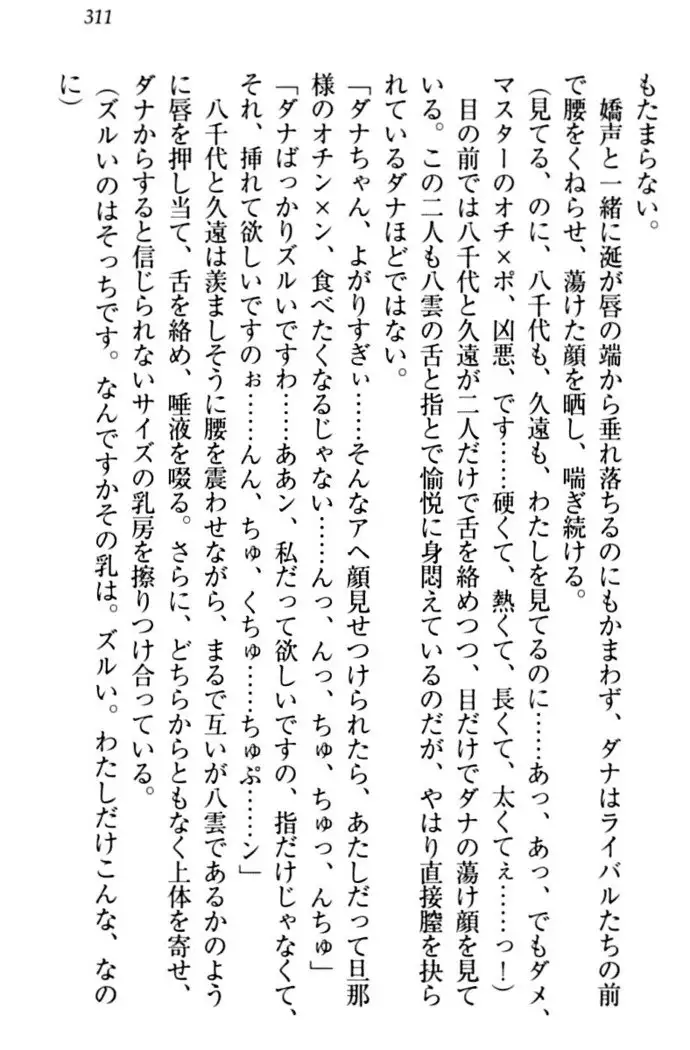 311
もたまらない。
嬌声と一緒に涎が唇の端から垂れ落ちるのにもかまわず、ダナはライバルたちの前
で腰をくねらせ、蕩けた顔を晒し、喘ぎ続ける。
(見てる、のに、八千代も、久遠も、わたしを見てるのに……あっ、あっ、でもダメ、
マスターのオチ×ポ、凶悪、です……硬くて、熱くて、長くて、太くてぇ……っ！)
目の前では八千代と久遠が二人だけで舌を絡めつつ、目だけでダナの蕩け顔を見て
いる。この二人も八雲の舌と指とで愉悦に身悶えているのだが、やはり直接膣を抉ら
れているダナほどではない。
「ダナちゃん、よがりすぎぃ……そんなアヘ顔見せつけられたら、あたしだって旦那
様のオチン×ン、食べたくなるじゃない……んっ、んっ、ちゅ、ちゅっ、んちゅ」
「ダナばっかりズルいですわ……ああン、私だって欲しいですの、指だけじゃなくて、
それ、挿れて欲しいですのぉ……んん、ちゅ、くちゅ……ちゅぷ……ン」
八千代と久遠は羨ましそうに腰を震わせながら、まるで互いが八雲であるかのよう
に唇を押し当て、舌を絡め、唾液を啜る。さらに、どちらからともなく上体を寄せ、
ダナからすると信じられないサイズの乳房を擦りつけ合っている。
(ズルいのはそっちです。なんですかその乳は。ズルい。わたしだけこんな、なの
に)